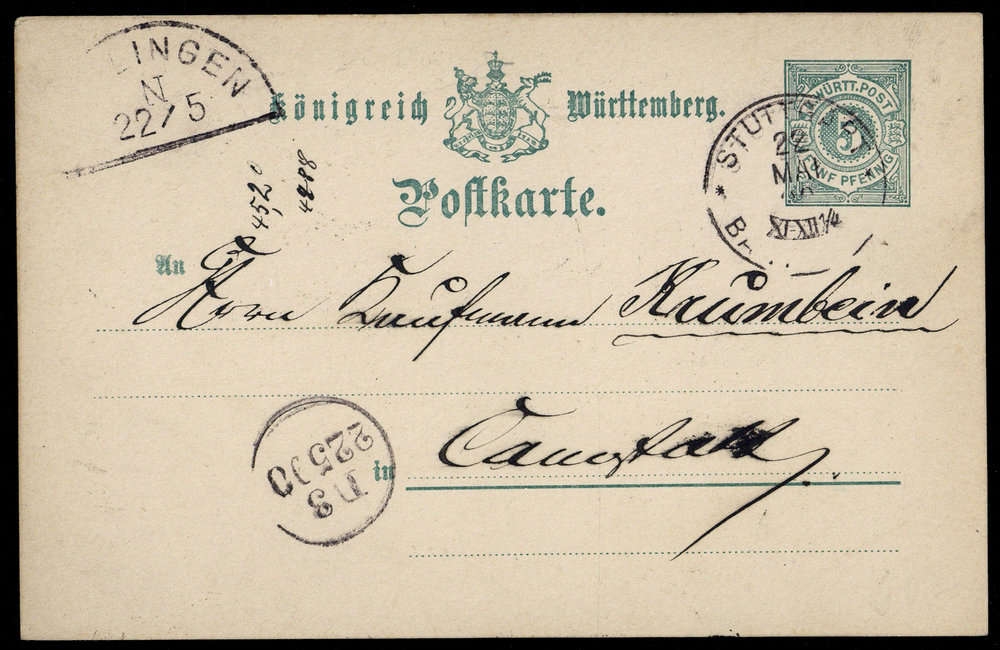 LINGEN
N
22/5
Königreich Württemberg.
WÜRTT. POST
5
FÜNF PFENNIG
STUTTG
22
MAI
XI-XII 1/4
4520
4288
Postkarte.
An
Herrn Kaufmann Krumbein
in Cannstatt
D3
22590